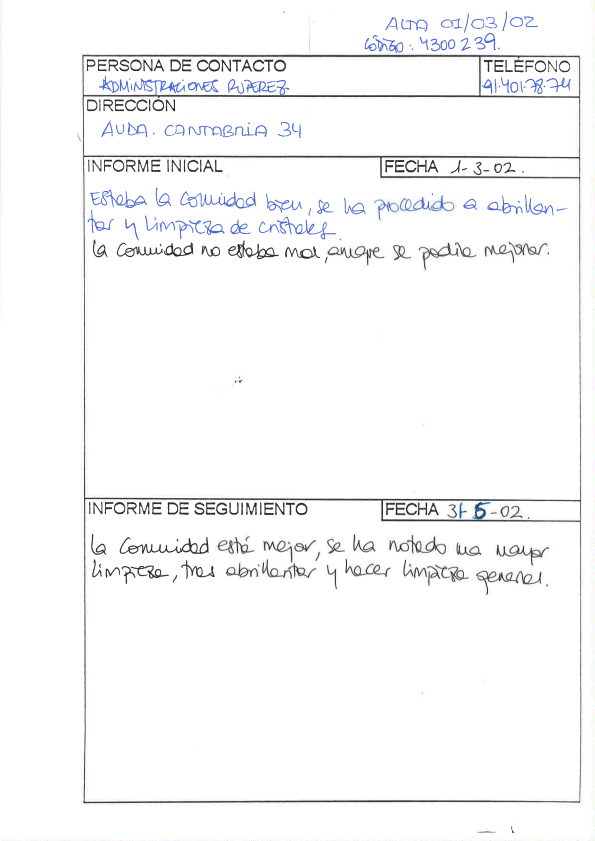 ALTA 01/03/02
CÓDIGO: 4300239.
PERSONA DE CONTACTO
TELÉFONO
ADMINISTRACIONES RUPEREZ
91.401.78.74
DIRECCIÓN
AVDA. CANTABRIA 34
INFORME INICIAL
FECHA 1-3-02.
Estaba la Comuidad bien, se ha procedido a abrillan-
tar y limpieza de cristales
la Comuidad no estaba mal, aunque se podría mejorar.
INFORME DE SEGUIMIENTO
FECHA 31-5-02.
la Comunidad está mejor, se ha notado una mayor
limpieza, tras abrillantar y hacer limpieza general.